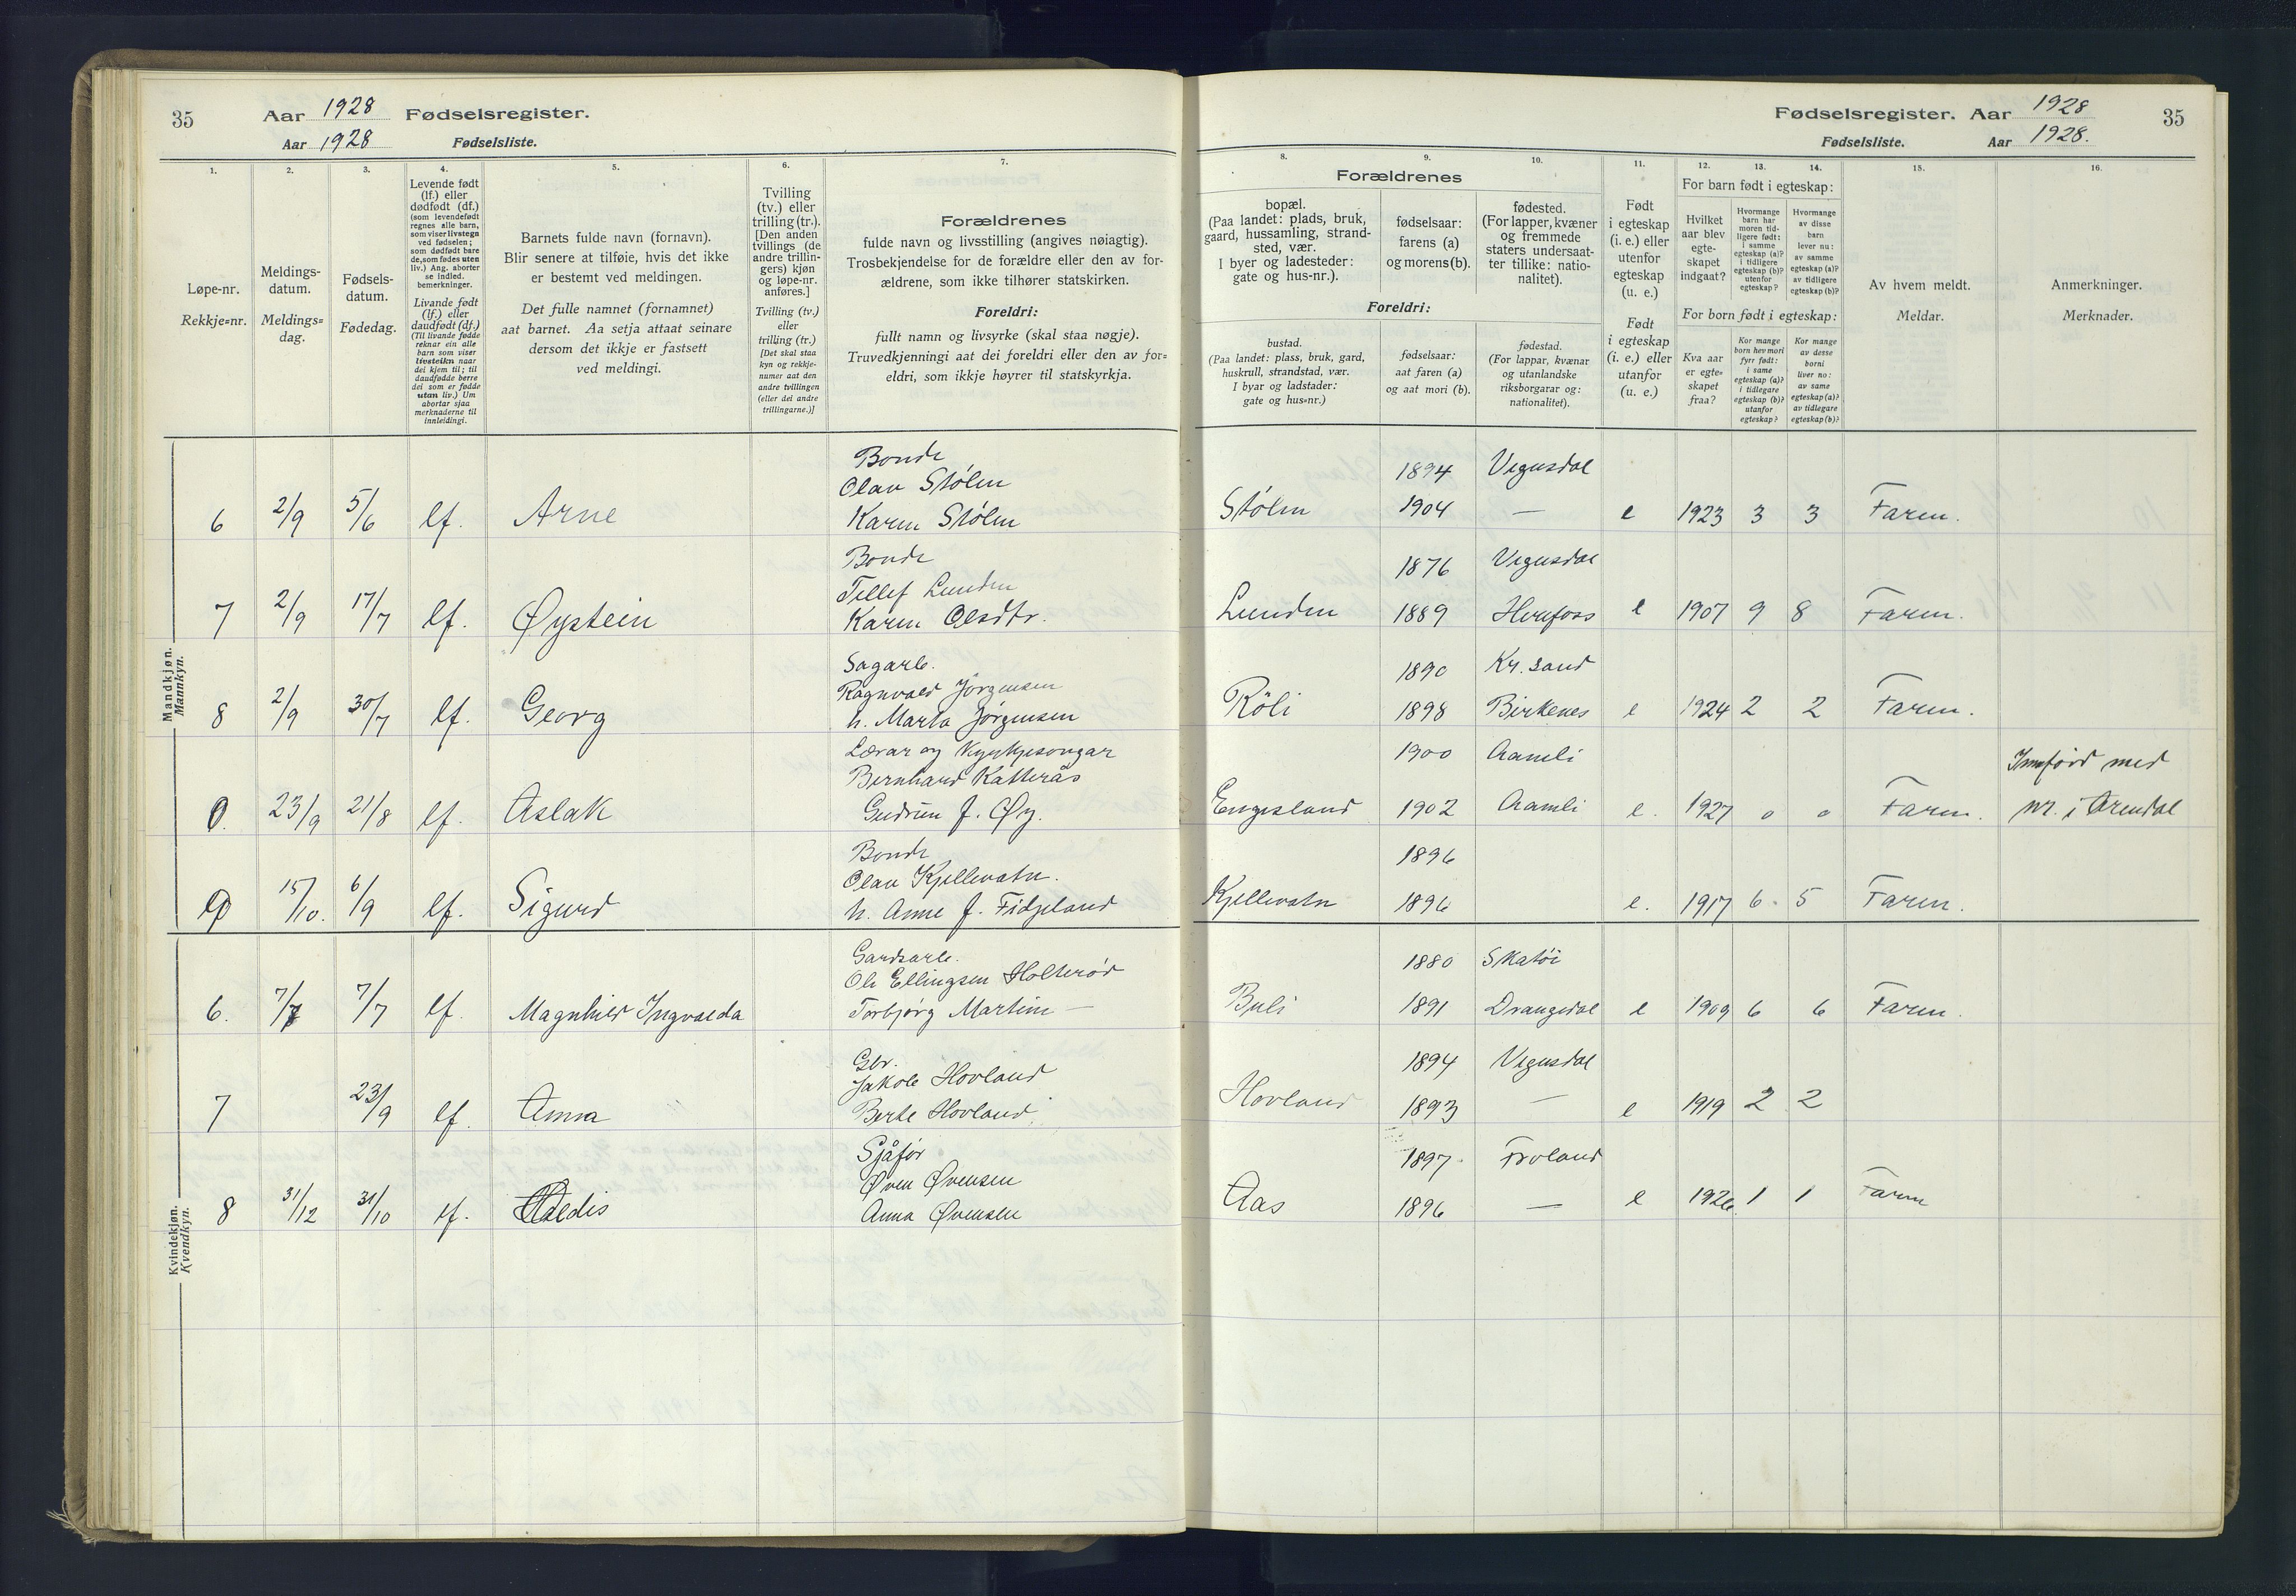 35 Aar 1928 Fødselsregister.
Aar 1928 Fødselsliste.
1. 2. 3. 4. 5. 6. 7.
Løpe-nr.
Rekkje=nr.
Meldings-
datum.
Meldings=
dag.
Fødsels-
datum.
Fødedag.
Levende født
(lf.) eller
dødfødt (df.)
(som levendefødt
regnes alle barn,
som viser livstegn
ved fødselen;
som dødfødt bare
de, som fødes uten
liv.) Ang. aborter
se indled.
bemerkninger.
Livande født
(lf.) eller
daudfødt (df.)
(Til livande fødde
reknar ein alle
barn som viser
livsteikn naar
dei kjem til; til
daudfødde berre
dei som er fødde
utan liv.) Um
abortar sjaa
merknaderne til
innleidingi.
Barnets fulde navn (fornavn).
Blir senere at tilføie, hvis det ikke
er bestemt ved meldingen.
Det fulle namnet (fornamnet)
aat barnet. Aa setja attaat seinare
dersom det ikkje er fastsett
ved meldingi.
Tvilling
(tv.) eller
trilling (tr.).
[Den anden
tvillings (de
andre trillin-
gers) kjøn
og løpe-nr.
anføres.]
Tvilling (tv.)
eller
trilling (tr.)
[Det skal staa
kyn og rekkje-
numer aat den
andre tvillingen
(eller dei andre
trillingarne.)]
Forældrenes
fulde navn og livsstilling (angives nøiagtig).
Trosbekjendelse for de forældre eller den av for-
ældrene, som ikke tilhører statskirken.
Foreldri:
fullt namn og livsyrke (skal staa nøgje).
Truvedkjenningi aat dei foreldri eller den av for=
eldri, som ikkje høyrer til statskyrkja.
Mandkjøn.
Mannkyn.
Bonde
Olav Stølen
6 2/9 5/6 lf. Arne Karen Stølen
Bonde
Tellef Lunden
7 2/9 17/7 lf. Øystein Karen Olsdtr.
Sagarb.
Ragnvald Jørgensen
8 2/9 30/7 lf. Georg h. Marta Jørgensen
Lærar og Kyrkjesongar
Bernhard Katterås
0. 23/9 21/8 lf. Aslak Gudrun J. Øy.
Bonde
Olav Kjellevatn.
15/10. 6/9 lf. Sigurd h. Anne J. Fidjeland
Kvindekjøn.
Kvendkyn.
Gardsarb.
Ole Ellingsen Holterød
6. 7/7 7/7 lf. Magnhild Ingvalda Torbjørg Martine —
Gbr.
Jakob Hovland
7 23/9 lf. Anna Berte Hovland
Sjåfør
Øven Øvensen
8 31/12 31/10 lf. Aldis Anna Øvensen
Fødselsregister. Aar 1928 35
Fødselsliste. Aar 1928.
8. 9. 10. 11. 12. 13. 14. 15. 16.
Forældrenes
bopæl.
(Paa landet: plads, bruk,
gaard, hussamling, strand-
sted, vær.
I byer og ladesteder:
gate og hus-nr.).
fødselsaar:
farens (a)
og morens (b).
fødested.
(For lapper, kvæner
og fremmede
staters undersaat-
ter tillike: natio-
nalitet).
Foreldri:
bustad.
(Paa landet: plass, bruk, gard,
huskrull, strandstad, vær.
I byar og ladstader:
gate og hus=nr.)
fødselsaar:
aat faren (a)
og aat mori (b).
fødestad.
(For lappar, kvænar
og utanlandske
riksborgarar og:
nationalitet).
Født
i egteskap
(i. e.) eller
utenfor
egteskap
(u. e.)
Født
i egteskap
(i. e.) eller
utanfor
(u. e.)
For barn født i egteskap:
Hvilket
aar blev
egte-
skapet
indgaat?
Hvormange
barn har
moren tid-
ligere født:
i samme
egteskap (a)?
i tidligere
egteskap (b)?
utenfor
egteskap?
Hvormange
av disse
barn
lever nu:
av samme
egteskap (a)?
av tidligere
egteskap (b)?
For born født i egteskap:
Kva aar
er egte=
skapet
fraa?
Kor mange
born hev mori
fyrr født:
i same
egteskap (a)?
i tidlegare
egteskap (b)?
utanfor
egteskap?
Kor mange
av desse
borni
liver no:
av same
egteskap (a)?
av tidlegare
egteskap (b)?
Av hvem meldt.
Meldar.
Anmerkninger.
Merknader.
1894 Vegusdal
Stølen 1904 — e 1923 3 3 Faren.
1876 Vegusdal
Lunden 1889 Herefoss e 1907 9 8 Faren.
1890 Kr. sand
Röli 1898 Birkenes e 1924 2 2 Faren.
1900 Aamli Innførd med
Engesland 1902 Aamli e. 1927 0 0 Faren. nr. i Arendal
1896
Kjellevatn 1896 e. 1917 6. 5 Faren.
1880 Skatöi
Buli 1891 Drangedal e 1909 6 6 Faren.
1894 Vegusdal
Hovland 1893 — e 1919 2 2
1897 Froland
Aas 1896 — e 1926 1 1 Faren